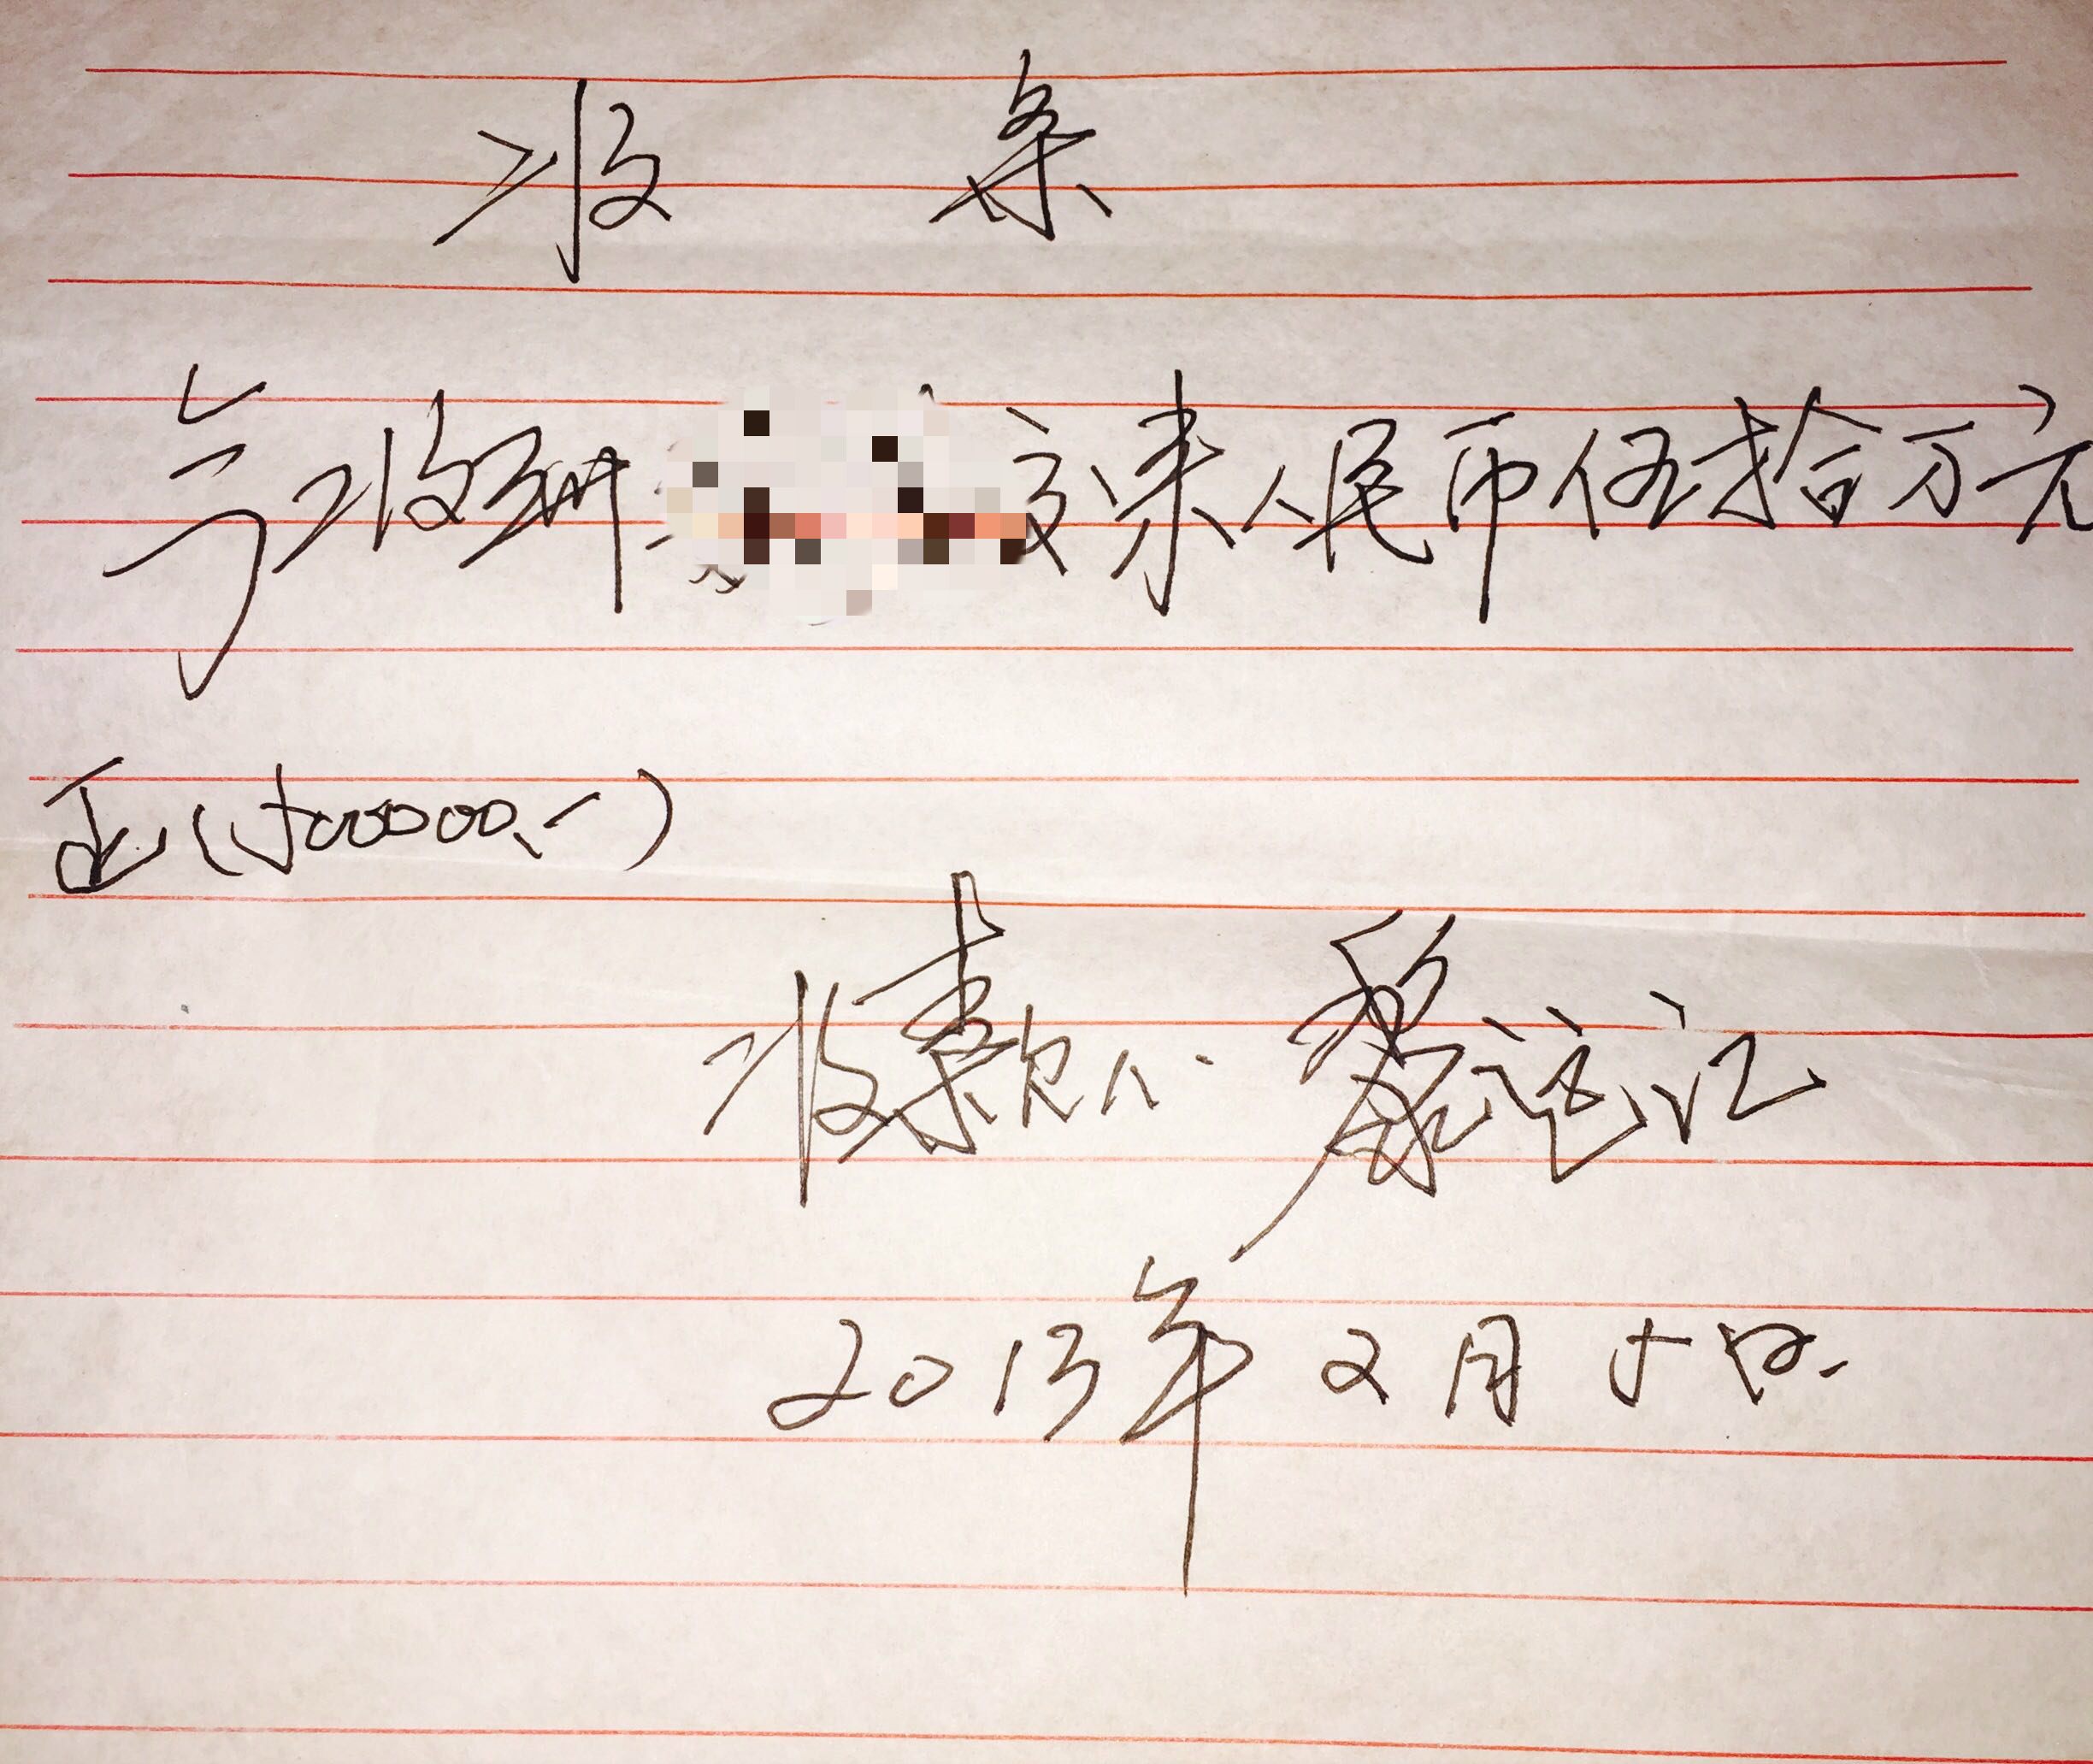 收 条
今收到 交来人民币伍拾万元
正(500000.-)
收款人: 黎运记
2013年2月5日.